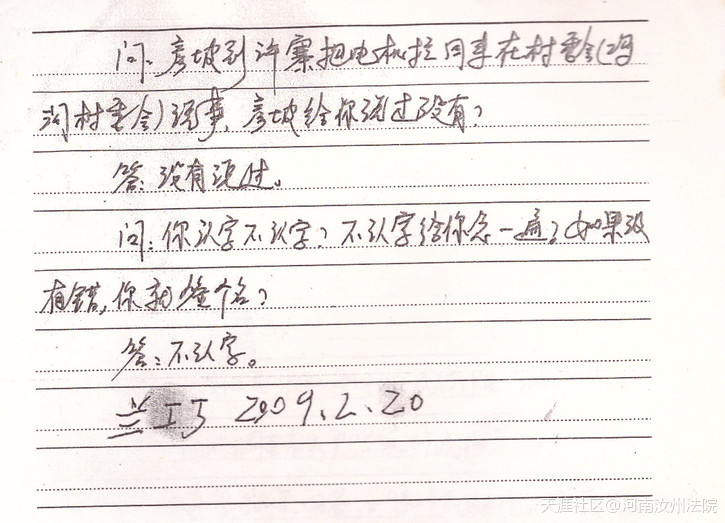 问：彦坡到许寨把电机拉回来在村委会（冯
沟村委会）说事，彦坡给你说过没有？
答：没有说过。
问：你认字不认字？不认字给你念一遍，如果没
有错，你就签个名？
答：不认字。
兰 2009.2.20
天涯社区@河南汝州法院